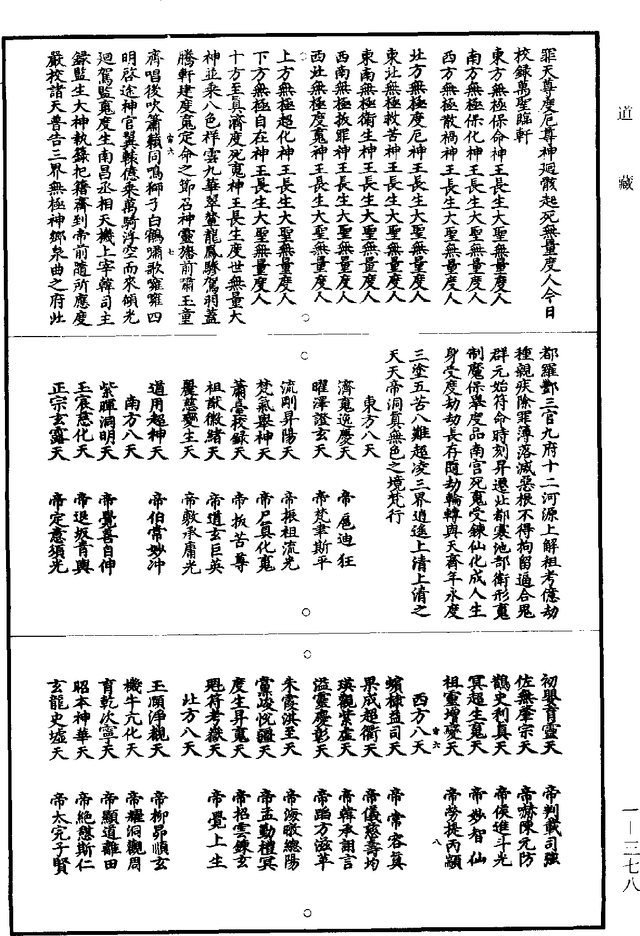 道藏
罪天尊度厄尊神迴骸起死無量度人今日
校録萬聖臨軒
東方無極保命神王長生大聖無量度人
南方無極保化神王長生大聖無量度人
西方無極散禍神王長生大聖無量度人
北方無極度厄神王長生大聖無量度人
東北無極救苦神王長生大聖無量度人
東南無極衛生神王長生大聖無量度人
西南無極拔罪神王長生大聖無量度人
西北無極度䰟神王長生大聖無量度人
上方無極超化神王長生大聖無量度人
下方無極自在神王長生大聖無量度人
十方至真濟度死䰟神王長生度世無量大
神並乘八色祥雲九華翠輦龍鳳驂駕羽蓋
騰軒建度䰟定命之節召神靈旛前嘯玉童
齊唱後吹簫籟同鳴獅子白鶴嘯歌嗈嗈四
明啓途神官翼轅億乘萬騎浮空而來傾光
迴駕監䰟度生南昌丞相天機上宰韓司主
録監生大神執録把籍齋到帝前隨所應度
嚴校諸天普告三界無極神鄉泉曲之府北
都羅酆三官九府十二河源上解祖考億劫
種親疾除罪簿落滅惡根不得拘留逼合鬼
群元始符命時刻昇遷北都寒池部衛形䰟
制魔保舉度品南宫死䰟受鍊仙化成人生
身受度劫劫長存随劫輪轉與天齊年永度
三塗五苦八難超凌三界逍遥上清上清之
天天帝洞真無色之境梵行
東方八天
濟䰟逸慶天　帝扈迪狂
曜澤證玄天　帝梵聿斯平
流剛昇陽天　帝振祖流光
梵氣舉神天　帝尸真化䰟
蕭臺校録天　帝扳苦尊
祖猷微緒天　帝道玄巨英
麗慈變生天　帝數承庸光
道用超神天　帝伯常妙冲
南方八天
紫暉洞明天　帝覺喜自伸
玉宸慈化天　帝退坡育輿
正宗玄露天　帝定意須光
初興育靈天　帝判載司強
佐無肇宗天　帝赫陳元防
鵲史利真天　帝侯進斗光
冥超生䰟天　帝妙智仙
祖靈增變天　帝勞提丙顯
西方八天
蠙棣益司天　帝常容真
果成超衢天　帝儀慈壽均
瑛觀紫虛天　帝韓承詡言
溢靈慶彰天　帝蹈方滋華
朱霞淇至天　帝海暾總陽
棠峻悦疆天　帝孟勤禮冥
度生昇䰟天　帝招雲鍊玄
兜符考嶽天　帝覺上生
北方八天
王頋淨觀天　帝柳昴順玄
機牛亢化天　帝耀洞觀周
育乾次寧天　帝顯道離田
昭本神華天　帝絶慈斯仁
玄龍史墟天　帝太完子賢
齊六　七
齊六　八
一—三七八